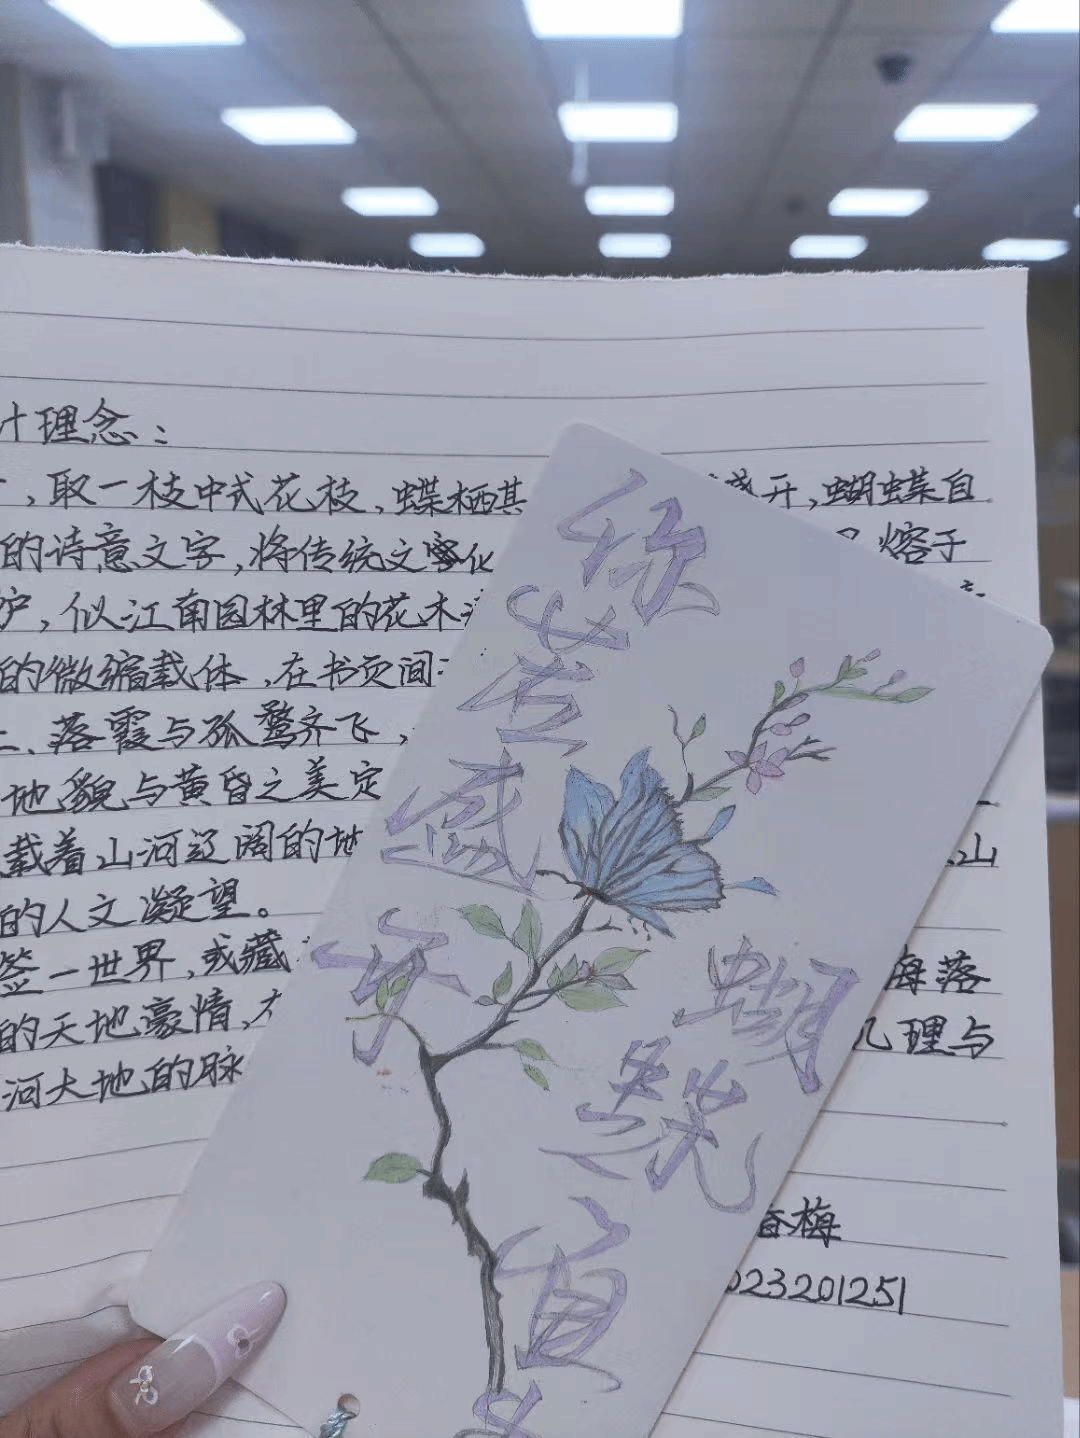 计理念：
，取一枝中式花枝，蝶栖其
盛开，蝴蝶自
的诗意文字，将传统文化
熔于
炉，似江南园林里的花木
的微缩载体，在书页间
二、落霞与孤鹜齐飞，
地貌与黄昏之美定
载着山河辽阔的地
山
的人文凝望。
签一世界，或藏
海落
的天地豪情，
几理与
河大地的脉
香梅
023201251
你若盛开
蝴蝶自